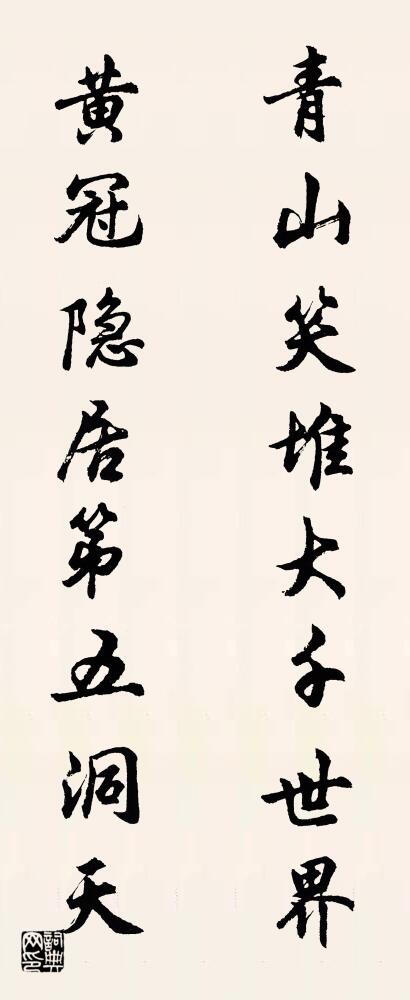 青山笑堆大千世界
黄冠隐居第五洞天